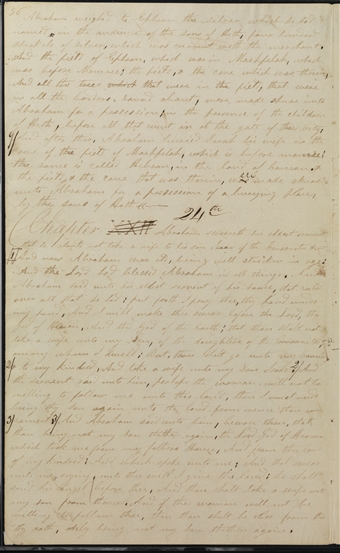 56 Abraham weighed to Ephron the silver, which he had
named, in the audience of the sons of Heth, four hundred
shekels of silver, which was current with the merchant.
And the field of Ephron, which was in Machpelah, which
was before Mamre; the field, & the cave which was therein,
And all the trees which that were in the field, that were
in all the borders, round about, were made shure unto
Abraham for a possession; in the presence of the children
of Heth, before all that went in at the gate of the city,
And after this, Abraham buried Sarah his wife in the
cave of the field of Machpelah, which is before mamre:
the same is called Hebron, in the land of
the field, & the cave that was therein, were made shure
unto Abraham for a possession of a burying place,
by the sons of Heth
24th
Chapter XXII Abraham
Isaac
And now Abraham was old, being well stricken in age:
And the Lord had blessed Abraham in all things. And
Abraham said unto his eldest servant of his house, that ruled
over all that he had; put forth I pray thee, thy hand under
my hand, And I will make thee swear before the Lord, the
God of Heaven, And the God of the earth; that thou shalt not
take a wife unto my Son, of the daughters of the
among whom I dwell; But, thou shalt go unto my country
2/ to my kindred, And take a wife unto my Son Isaac. And
the servant said unto him, perhaps the woman will not be
willing to follow me unto this land, then I must needs
bring thy Son again unto the land from whence thou
3/ And Abraham said unto him, beware thou, that
thou bring not my Son thither again, the Lord God of Heaven
which took me from my fathers House, And from the
of my kindred; And which spake unto me; And that swear
unto me, saying, unto thy seed I give this land; he shall
send his angel before thee, And thou shalt take a wife unto
my son from thence. And if the woman will not be
willing to follow thee, then thou shalt be clear from this
my oath, only bring not my Son thither again.